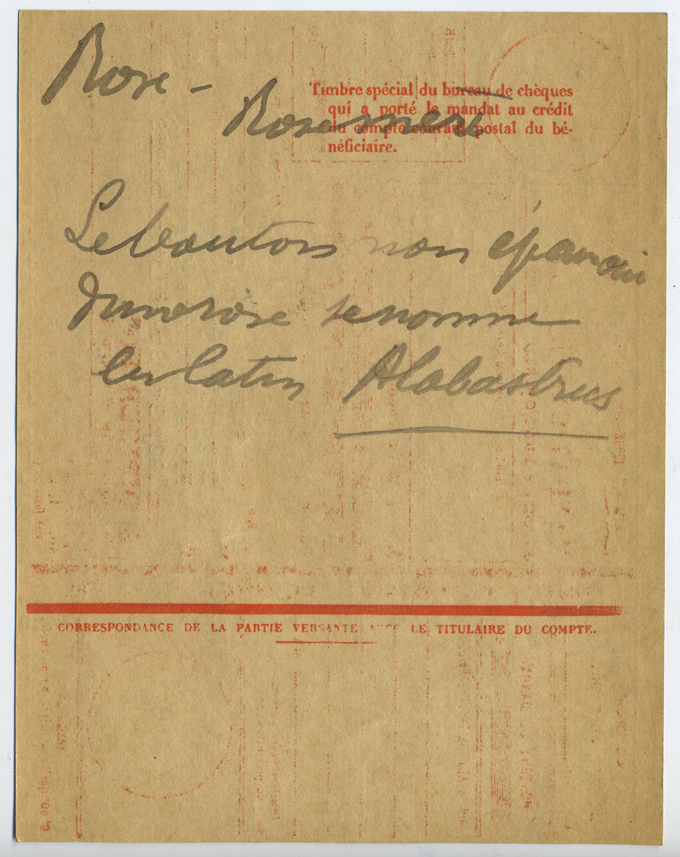 Rose -
Timbre spécial du bureau de chèques
qui a porté le mandat au crédit
du compte courant postal du bé-
néficiaire.
Le bouton non épanoui
d'une rose se nomme
en latin Alabastrus
CORRESPONDANCE DE LA PARTIE VERSANTE LE TITULAIRE DU COMPTE.